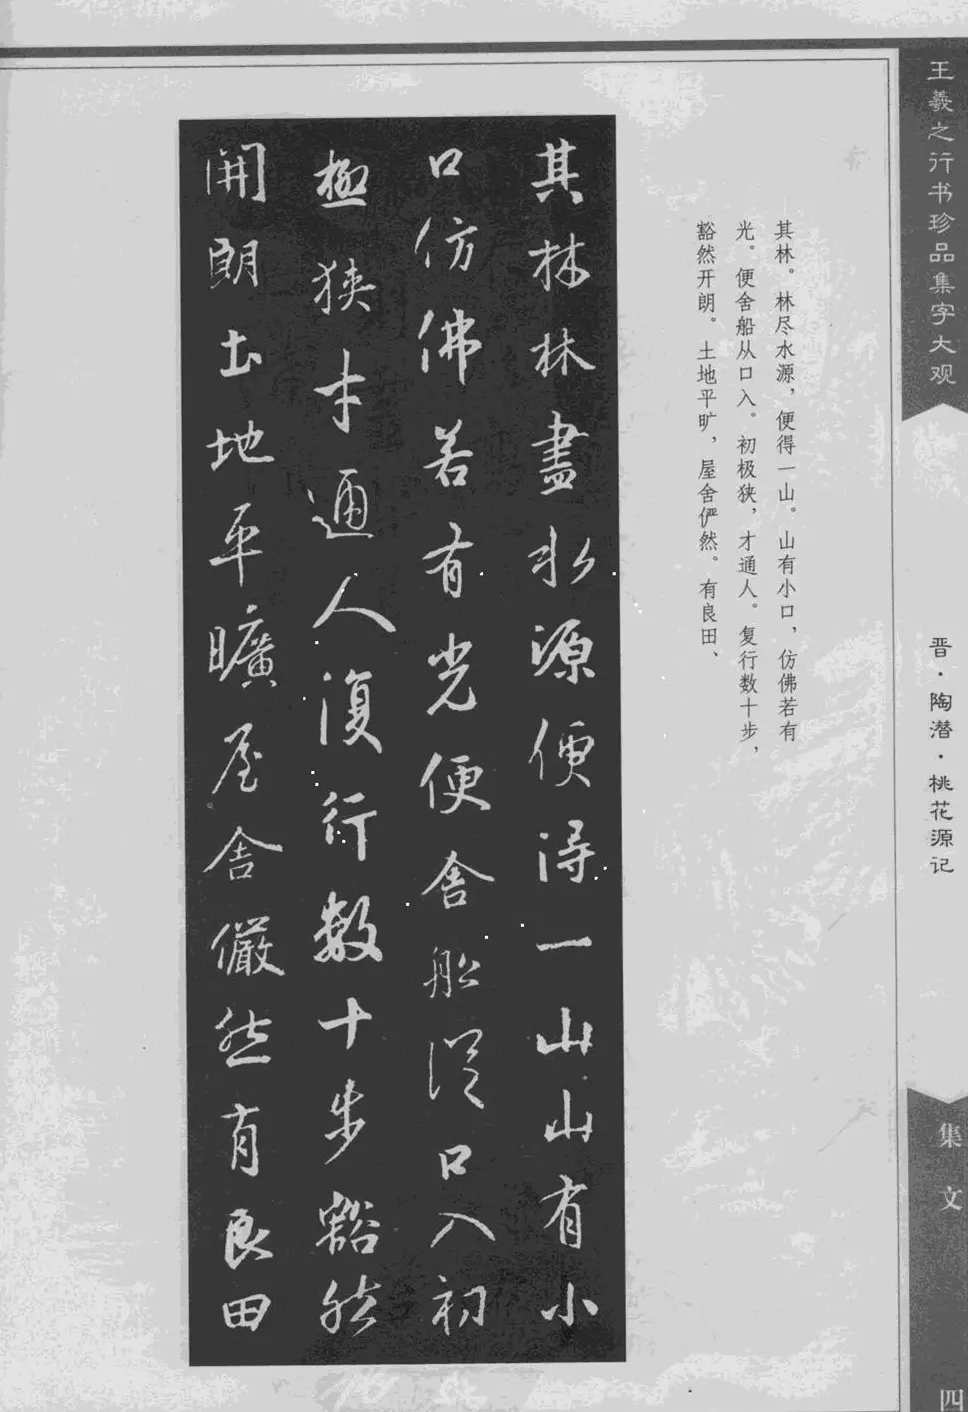 王羲之行书珍品集字大观
晋·陶潜·桃花源记
集文
四
其林。林尽水源，便得一山。山有小口，仿佛若有
光。便舍船从口入。初极狭，才通人。复行数十步，
豁然开朗。土地平旷，屋舍俨然。有良田、
其林林盡水源便得一山山有小
口仿佛若有光便舍船從口入初
極狹才通人復行數十步豁然
開朗土地平曠屋舍儼然有良田